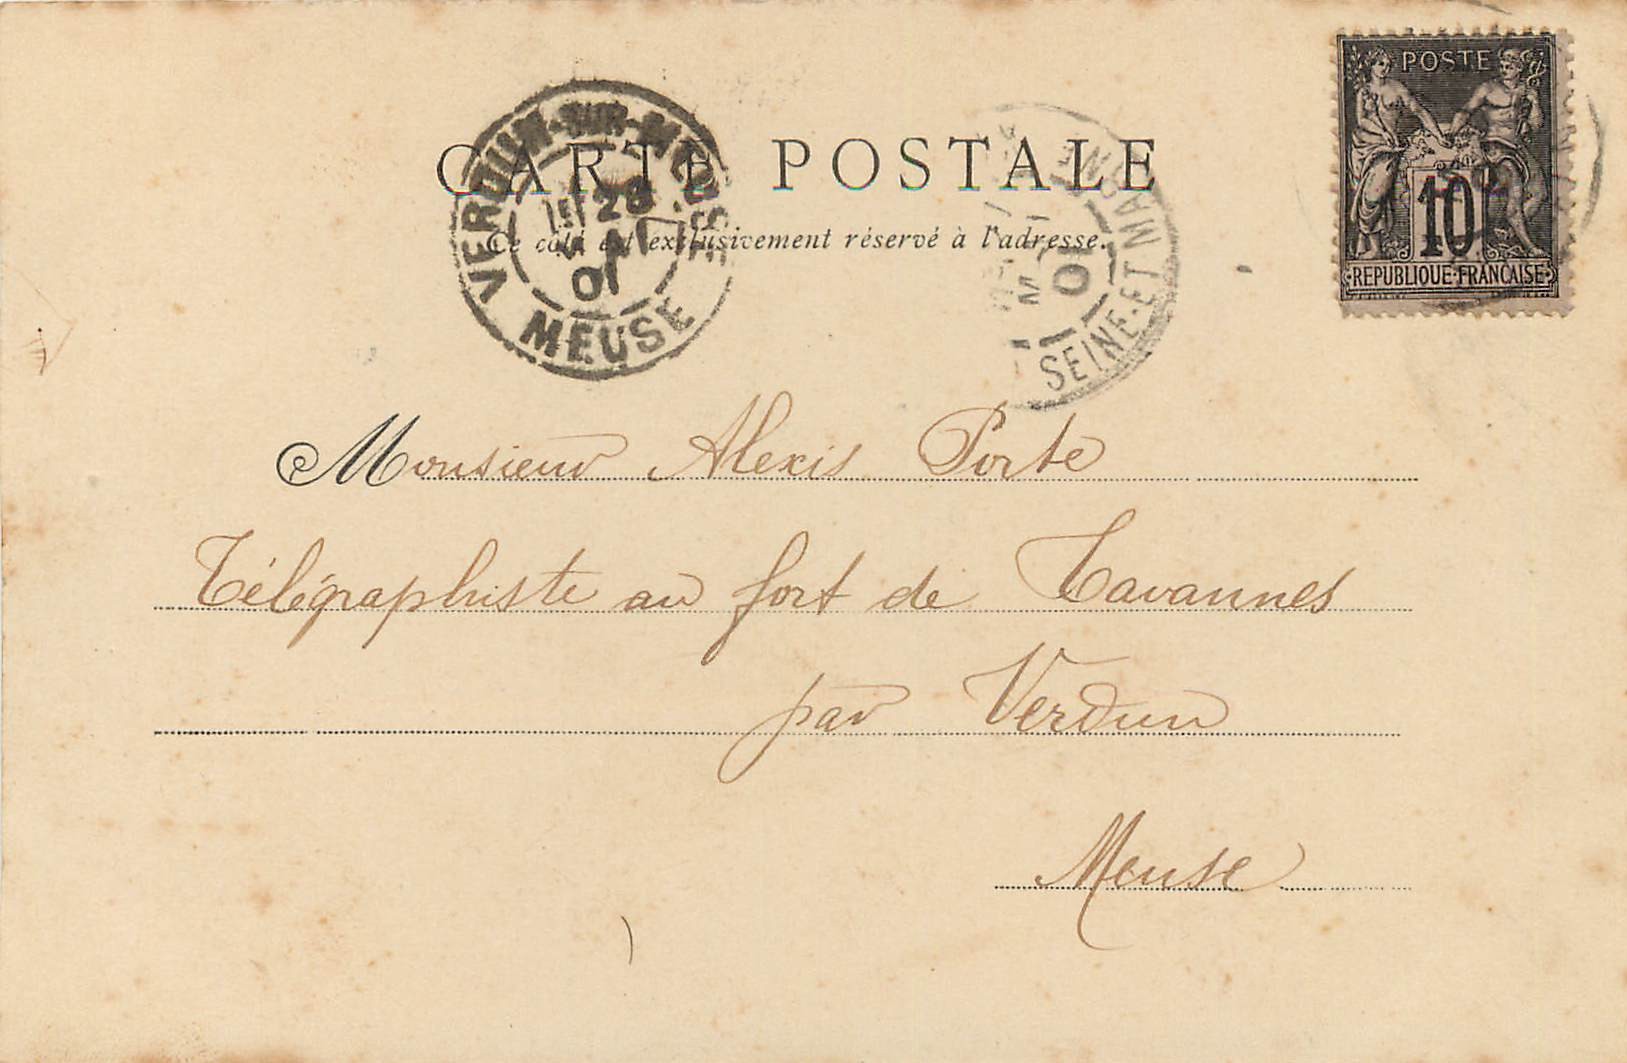 POSTE
10
REPUBLIQUE FRANCAISE
CARTE POSTALE
Ce côté est exclusivement réservé à l'adresse.
VERDUN-SUR-MEUSE
28
01
MEUSE
01
SEINE-ET-MARNE
Monsieur Alexis Porte
Télégraphiste au fort de Tavannes
par Verdun
Meuse